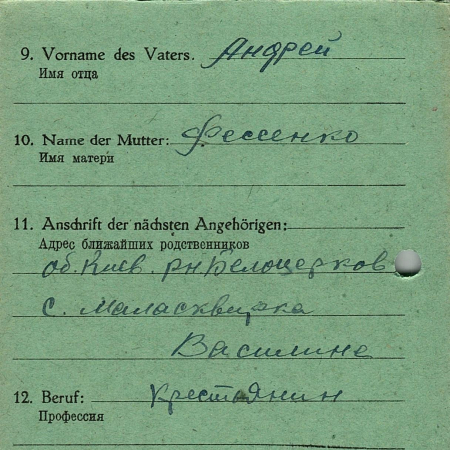 9. Vorname des Vaters. Андрей
Имя отца
10. Name der Mutter: Фессенко
Имя матери
11. Anschrift der nächsten Angehörigen:
Адрес ближайших родственников
об. Киев. рн Белоцерков
с. Маласквирка
Василине
12. Beruf: Крестьянин
Профессия